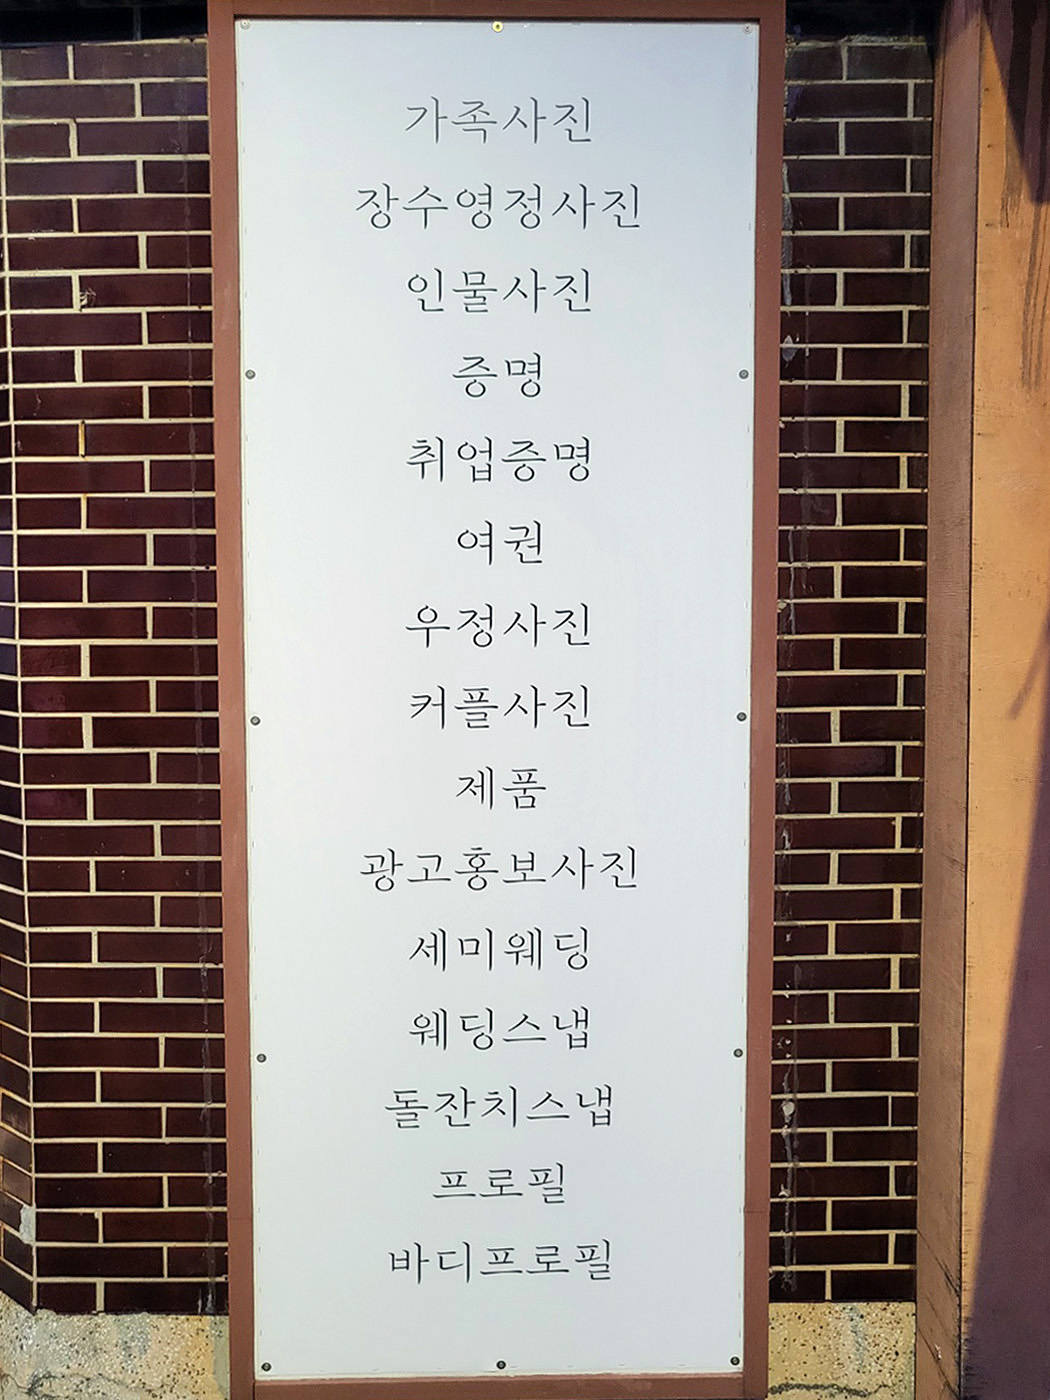 가족사진
장수영정사진
인물사진
증명
취업증명
여권
우정사진
커플사진
제품
광고홍보사진
세미웨딩
웨딩스냅
돌잔치스냅
프로필
바디프로필